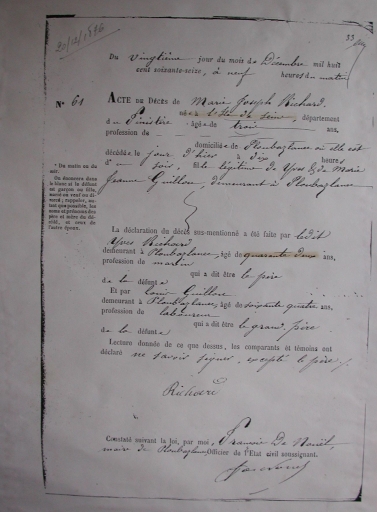 20/12/1876
33
Du vingtième jour du mois de Décembre mil huit
cent soixante-seize, à neuf heures du matin
N° 61 ACTE DE DÉCÈS de Marie Joseph Richard
née à l'Ile de Seine, département
du Finistère âgée de trois ans,
profession de domiciliée de Ploubazlanec où elle est
décédée le jour d'hier à dix heures
du soir, fille légitime de Yves & de Marie
Jeanne Guillou, demeurant à Ploubazlanec
* Du matin ou du
soir.
La déclaration du décès sus-mentionné a été faite par ledit
Yves Richard
demeurant à Ploubazlanec, âgé de quarante deux ans,
profession de marin
qui a dit être le père
de la défunte
Et par Louis Guillou
demeurant à Ploubazlanec, âgé de soixante quatre ans,
profession de laboureur
qui a dit être le grand père
de la défunte
Lecture donnée de ce que dessus, les comparants et témoins ont
déclaré ne savoir signer, excepté le père.
Richard
Constaté suivant la loi, par moi, François Le
maire de Ploubazlanec, Officier de l'Etat civil soussigné.